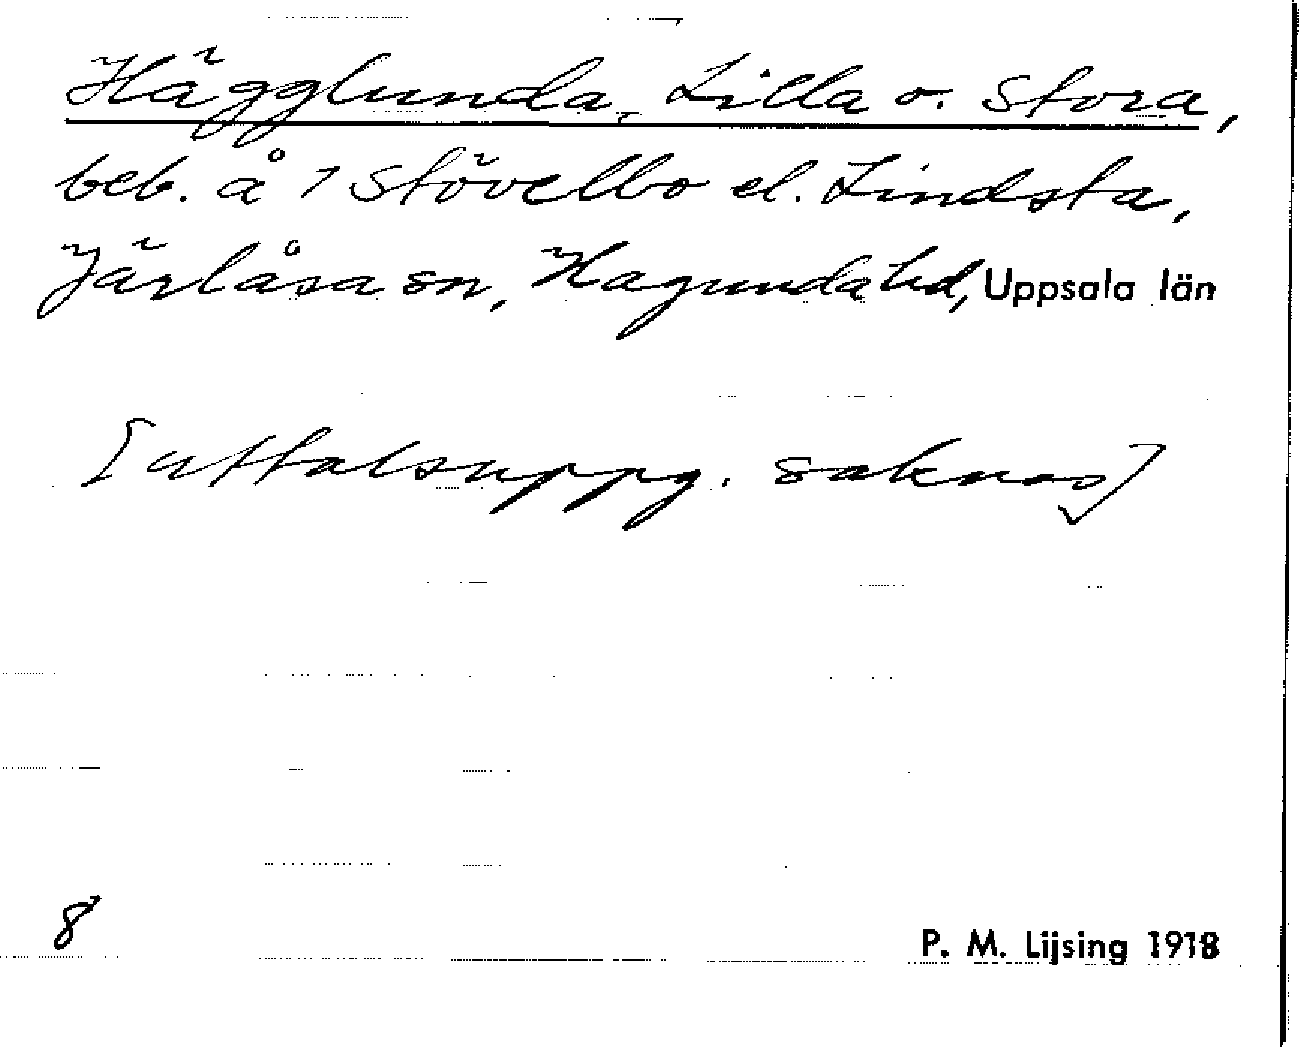 Hägglunda, Lilla o. Stora,
beb. å 1 Stövelbo el. Lindsta,
Järlåsa sn, Hagunda hd, Uppsala län
[uttalsuppg. saknas]
8
P. M. Lijsing 1918